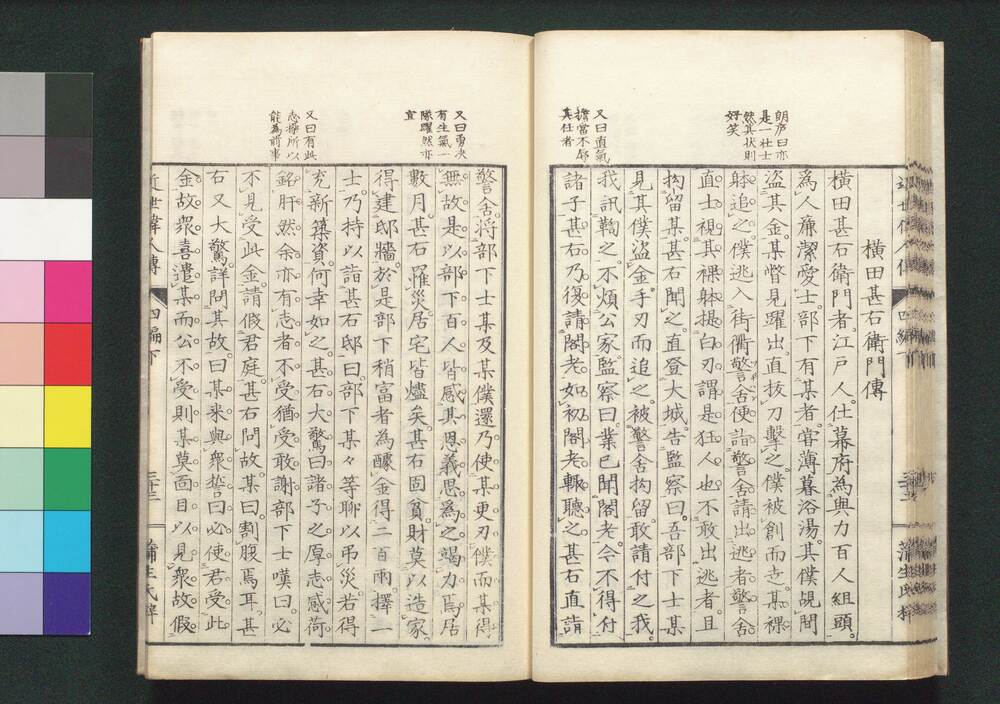 朗廬曰亦
是一壮士
然其状則
好笑
又曰直気
擔當不辱
其任者
横田甚右衛門傳
横田甚右衛門者。江戸人。仕幕府為與力百人組頭。
為人廉潔愛士。部下有某者。嘗薄暮浴湯。其僕覘間
盗其金。某瞥見躍出直抜刀撃之。僕被創而走。某裸
躰追之。僕逃入街衢警舎。便詣警舎請出逃者。警舎
直士視其裸躰提白刃。謂是狂人也。不敢出逃者。且
拘留某。甚右聞之。直登大城。告監察曰。吾部下士某
見其僕盗金。手刃而追之。被警舎拘留。敢請付之我。
我訊鞫之。不煩公家。監察曰。業已聞閣老。今不得付
諸子。甚右乃復請閣老如初。閣老輙聴之。甚右直詣
又曰勇决
有生氣一
隊躍然亦
宜
又曰有此
志操所以
能為前事
警舎。将部下士某及某僕還。乃使某更刃僕。而某得
無故。是以部下百人皆感其恩義。思為之竭力焉。居
數月。甚右罹災。居宅皆燼矣。甚右固貧。財莫以造家。
得建邸牆。於是部下稍富者為醵金得二百兩。擇一
士。乃持以詣甚右邸曰。部下某々等。聊以弔災。若得
充新築資。何幸如之。甚右大驚曰。諸子之厚志感荷
銘肝。然余亦有志者。不受猶受。敢謝部下士。嘆曰。必
不見受此金。請假君庭。甚右問故。某曰。割腹焉耳。甚
右又大驚詳問其故。曰。某来與衆誓曰。必使君受此
金。故衆喜遣某。而公不受則某莫面目以見衆。故假
近世偉人傳
四編下
三十三
蒲生氏梓